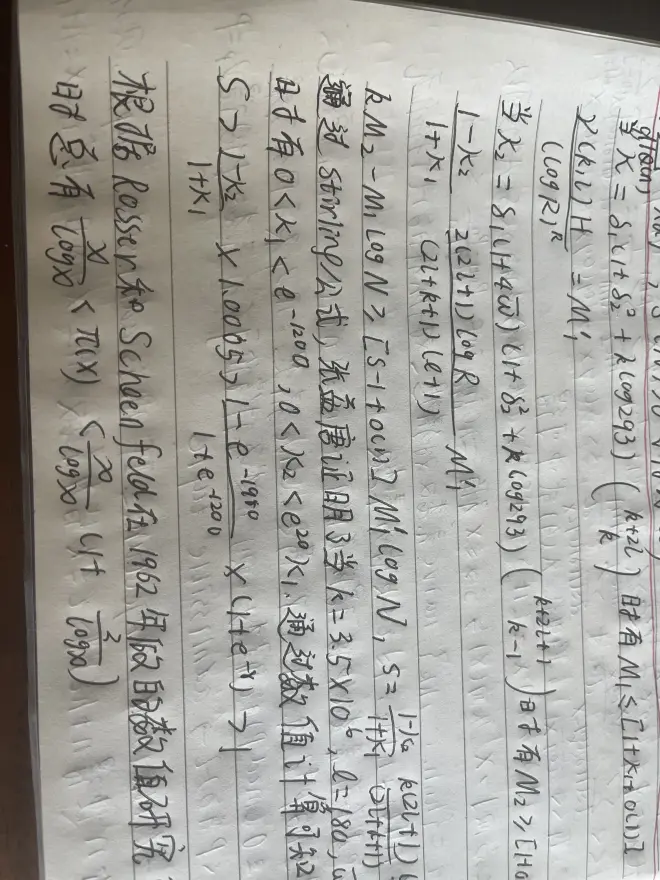 当 x₁ = δ₁(1+δ₂²+k log293) (k+2l k) 时有 M₁ ≤ [1+x₁+o(1)]
γ(k,l)H / (log R)ᵏ = M₁'
当 x₂ = δ₁(1+4ϖ)(1+δ₂²+k log293) (k+2l+1 k-1) 时有 M₂ ≥ [1+o
1-x₂ / 1+x₁ 2(2l+1) log R / (2l+k+1)(l+1) M₁'
kM₂ - M₁ log N ≥ [s-1+o(1)] M₁' log N, s = 1-x₂ / 1+x₁ k(2l+1)
通过 stirling公式, 张益唐证明了当 k=3.5×10⁶, l=180,
时有 0<x₁<e⁻¹²⁰⁰, 0<x₂<e²⁰x₁. 通过数值计算可知
s > 1-x₂ / 1+x₁ × 1.0005 > 1-e⁻¹¹⁸⁰ / 1+e⁻¹²⁰⁰ × (1+e⁻⁸) > 1
根据 Rosser和Schoenfeld在1962年的的数值研究
时总有 x / log x < π(x) < x / log x (1+ 3 / log x)